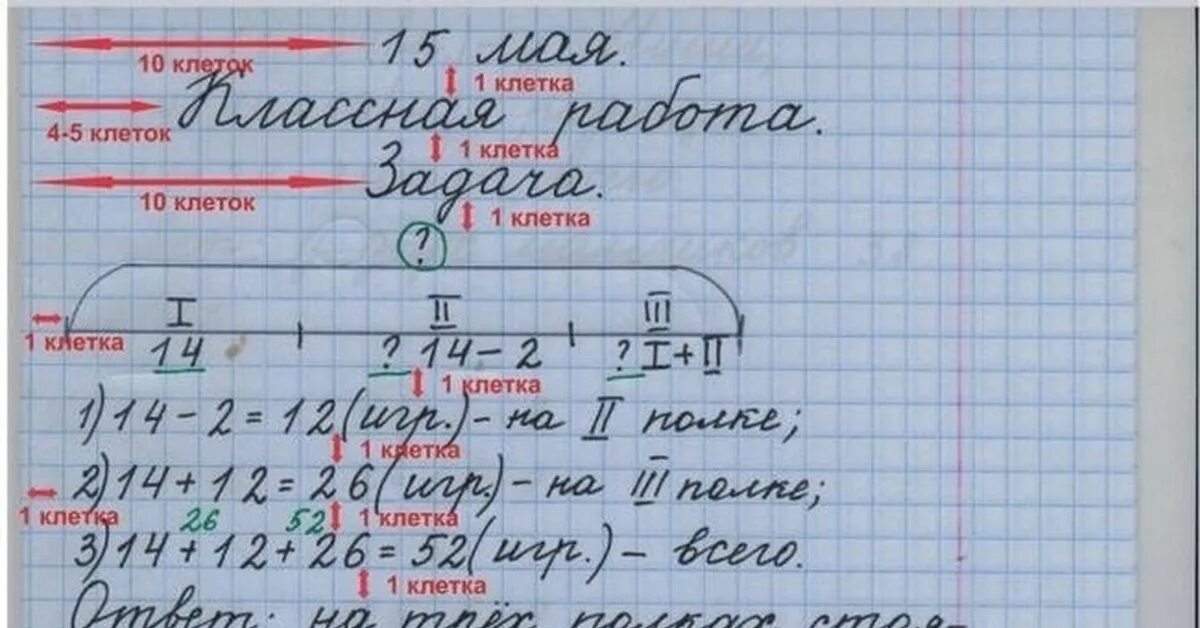 10 клеток 15 мая.
1 клетка
4-5 клеток Классная работа.
1 клетка
10 клеток Задача.
1 клетка
?
I II III
1 клетка 14 ? 14 - 2 ? I + II
1 клетка
1) 14 - 2 = 12 (игр.) - на II полке;
1 клетка
2) 14 + 12 = 26 (игр.) - на III полке;
1 клетка 26 52 1 клетка
3) 14 + 12 + 26 = 52 (игр.) - всего.
1 клетка
Ответ: на трёх полках стоя-